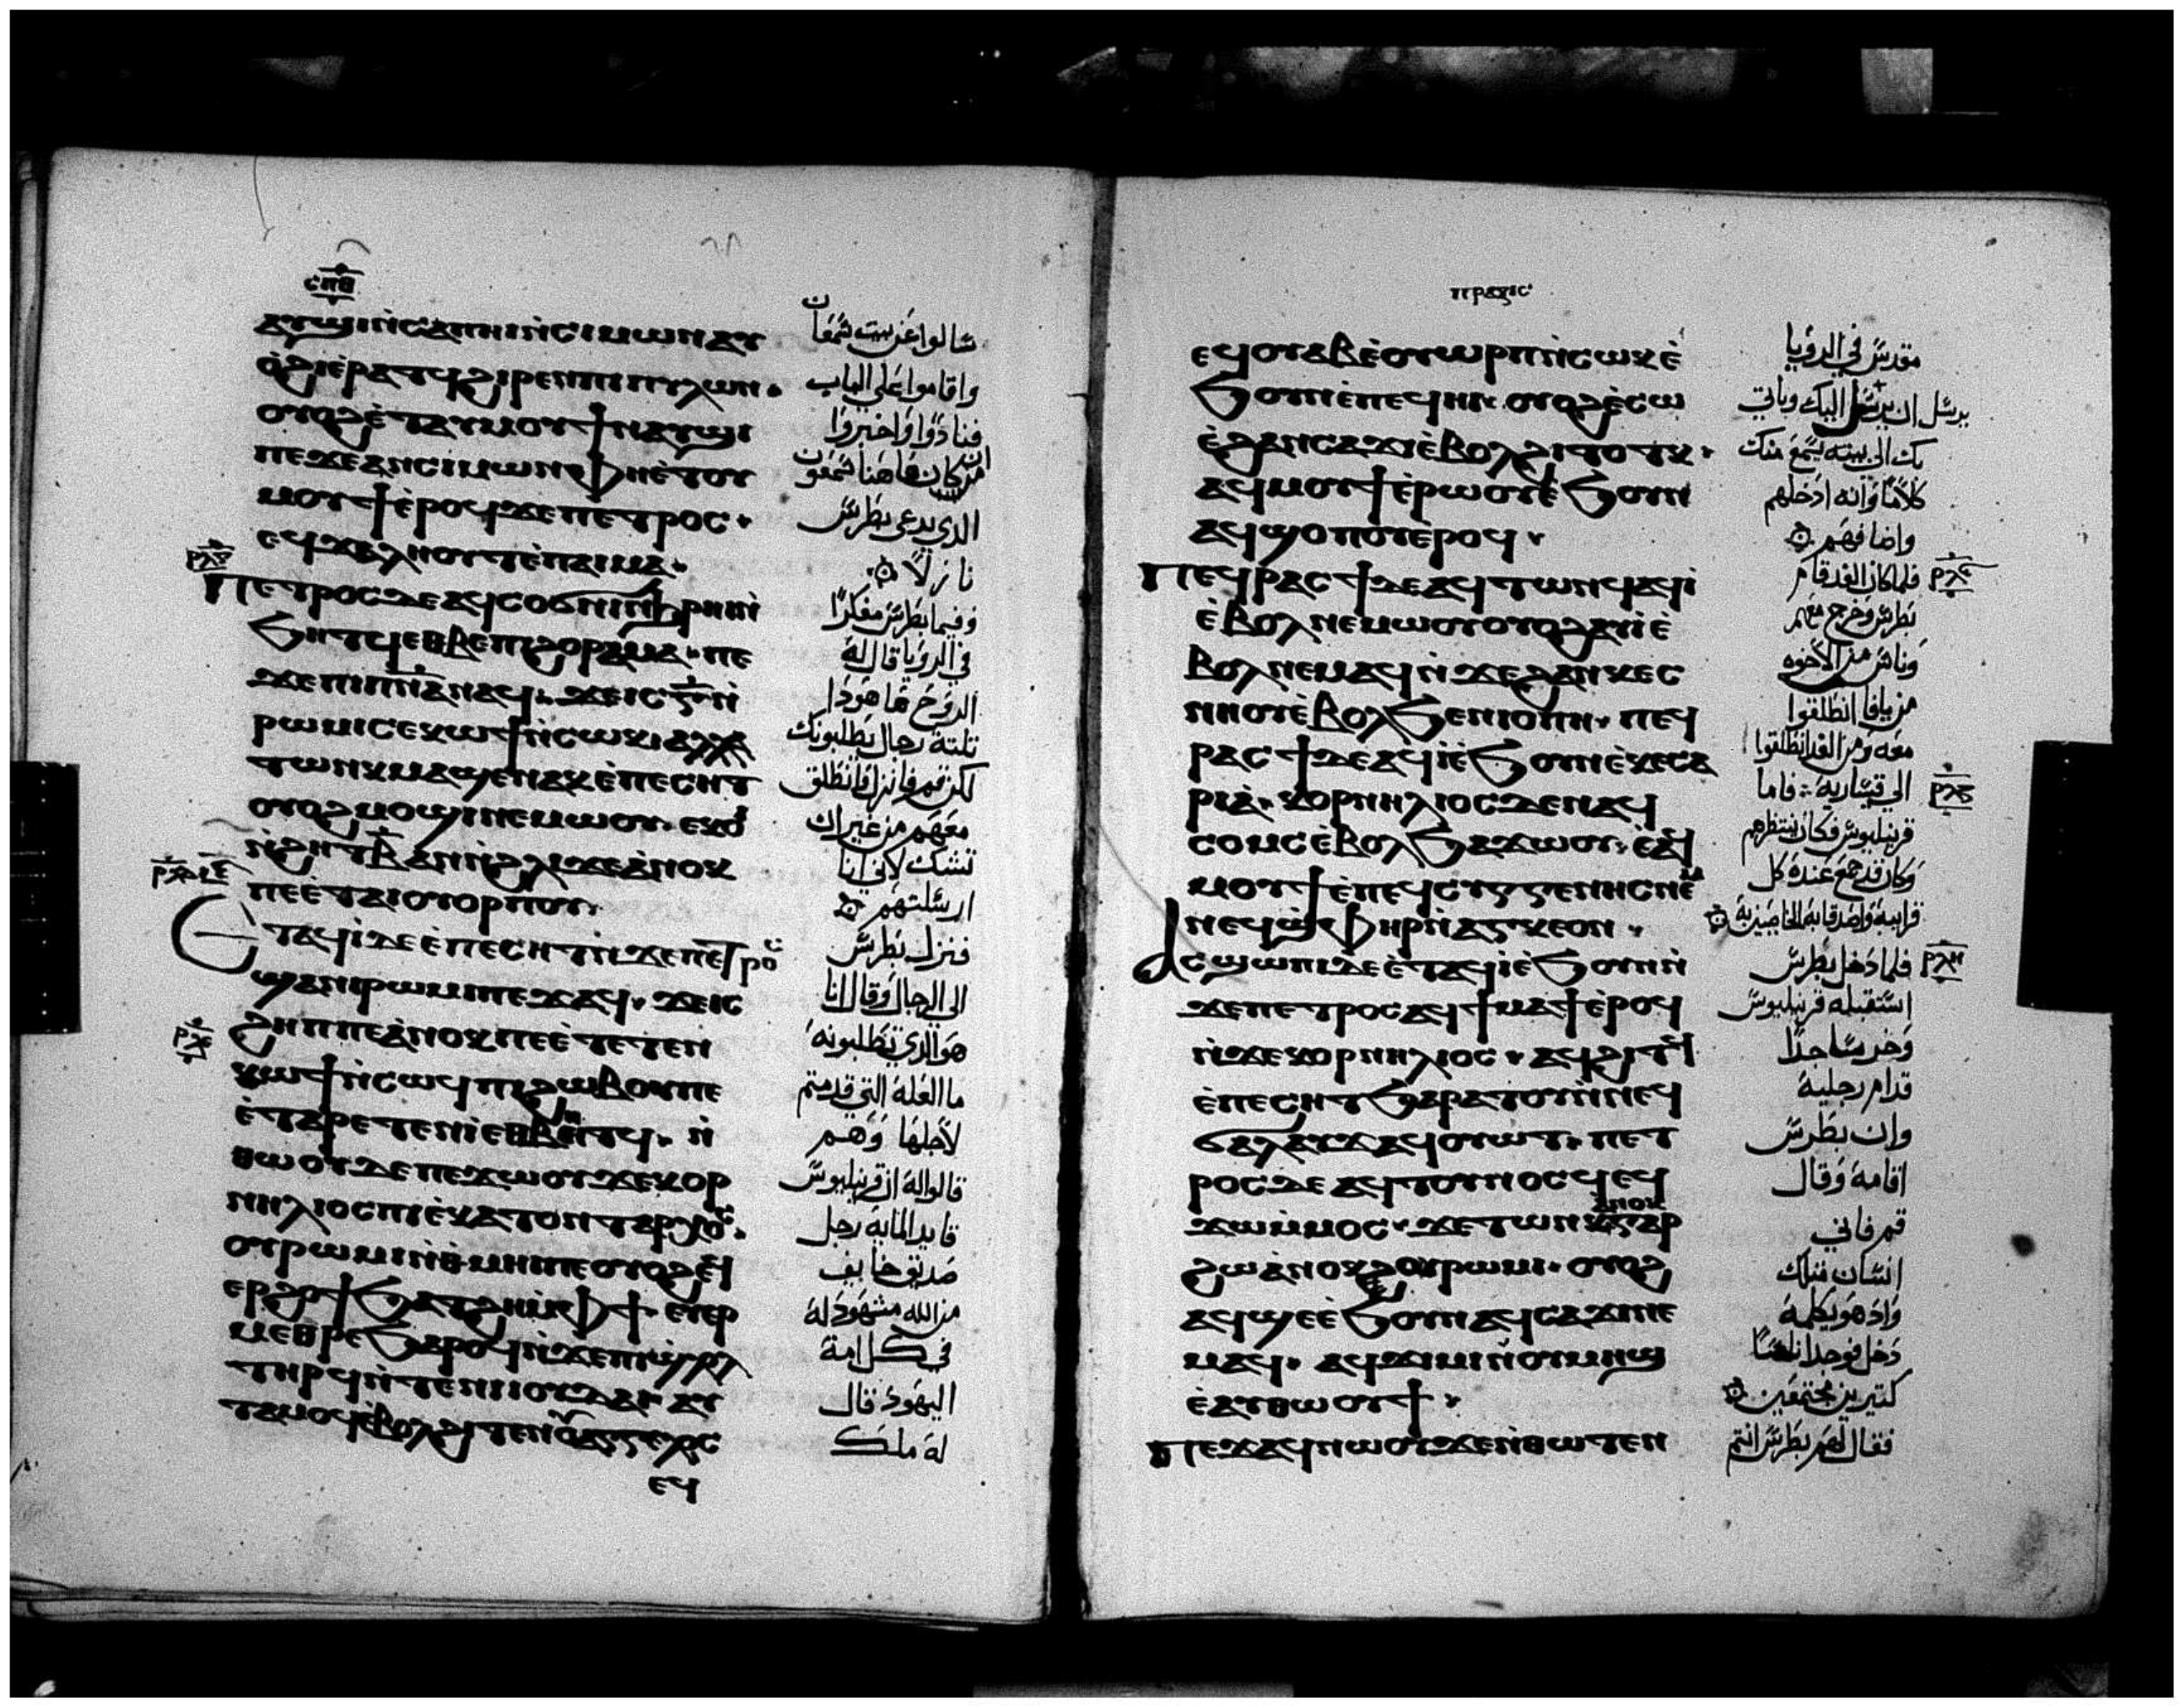 ⲥⲡⲑ
ⲁⲩϣⲓⲛⲓ ⲛ̀ⲥⲁ ⲡⲏⲓ ⲛ̀ⲥⲓⲙⲱⲛ ⲁⲩ
ⲟ̀ϩⲓ ⲉ̀ⲣⲁⲧⲟⲩ ϩⲓⲣⲉⲛ ⲡⲓⲡⲩⲗⲱⲛ.
ⲟⲩⲟϩ ⲉ̀ⲧⲁⲩⲙⲟⲩϯ ⲛⲁⲩϣⲓ
ⲡⲉ ϫⲉ ⲁⲛ ⲥⲓⲙⲱⲛ ⲫⲏ ⲉ̀ⲧⲟⲩ
ⲙⲟⲩϯ ⲉ̀ⲣⲟϥ ϫⲉ ⲡⲉⲧⲣⲟⲥ.
ⲡⲉⲧⲣⲟⲥ ⲇⲉ ⲉϥⲥⲟϭⲛⲓ ⲛ̀ϧⲣⲏⲓ ⲛ̀
ϧⲏⲧϥ ⲉⲑⲃⲉ ⲡⲓϩⲟⲣⲁⲙⲁ. ⲡⲉ
ϫⲉ ⲡⲓⲡⲛ̅ⲁ̅ ⲛⲁϥ. ϫⲉ ⲓⲥ ⲅ̅ ⲛ̀
ⲣⲱⲙⲓ ⲥⲉⲕⲱϯ ⲛ̀ⲥⲱⲕ ⲁⲗⲗⲁ
ⲧⲱⲛⲕ ⲙⲁϣⲉⲛⲁⲕ ⲉ̀ⲡⲉⲥⲏⲧ
ⲟⲩⲟϩ ⲙⲟϣⲓ ⲛⲉⲙⲱⲟⲩ. ⲉⲕⲟ̀
ⲛ̀ϩⲏⲧ ⲃ̅ ⲁⲛ ⲛ̀ϩⲗⲓ ϫⲉ ⲁ̀ⲛⲟⲕ
ⲡⲉ ⲉ̀ⲧⲁⲓⲟⲩⲟⲣⲡⲟⲩ.
ⲉⲧⲁϥⲓ̀ ⲇⲉ ⲉ̀ⲡⲉⲥⲏⲧ ⲛ̀ϫⲉ ⲡⲉⲧⲣⲟⲥ
ϣⲁ ⲛⲓⲣⲱⲙⲓ ⲡⲉϫⲁϥ. ϫⲉ ⲓⲥ
ϩⲏⲡⲡⲉ ⲁ̀ⲛⲟⲕ ⲡⲉ ⲉ̀ⲧⲉⲧⲉⲛ
ⲕⲱϯ ⲛ̀ⲥⲱϥ ⲡⲓϩⲱⲃ ⲟⲩ ⲡⲉ
ⲉ̀ⲧⲁⲣⲉⲧⲉⲛⲓ̀ ⲉⲑⲃⲏⲧϥ. ⲛ̀
ⲑⲱⲟⲩ ⲇⲉ ⲡⲉϫⲱⲟⲩ ϫⲉ ⲕⲟⲣ
ⲛⲏⲗⲓⲟⲥ ⲡⲓⲉ̀ⲕⲁⲧⲟⲛⲧⲁⲣⲭⲟⲥ.
ⲟⲩⲣⲱⲙⲓ ⲛ̀ⲑⲙⲏⲓ ⲡⲉ ⲟⲩⲟϩ ⲉϥ
ⲉⲣϩⲟϯ ϧⲁⲧϩⲏ ⲙ̀ⲫϯ. ⲉⲩⲉⲣ
ⲙⲉⲑⲣⲉ ϧⲁⲣⲟϥ ⲛ̀ϫⲉ ⲡⲓϣⲗⲟⲗ
ⲧⲏⲣϥ ⲛ̀ⲧⲉ ⲛⲓⲓⲟⲩⲇⲁⲓ ⲁⲩ
ⲧⲁⲙⲟϥ ⲉ̀ⲃⲟⲗ ϩⲓⲧⲉⲛ ⲟⲩⲁⲅⲅⲉⲗⲟⲥ
ⲉϥ
شالوا عن بيت شمعان
واقاموا علي الباب
فنادوا واخبروا
الدي يدعي بطرش
نازلاً
وفيما بطرش مفكرًا
في الرويا قال له
الروح هاهودا
تلتة رجال يطلبونك
لكن قم فانزل وانطلق
معهم من غير ان
تشك لاني انا
ارسلتهم
فنزل بطرش
الي الرجال وقال انا
هو الدي تطلبونه
ما العلة التي قدمتم
لاجلها وهم
قالوا له ان قرنيليوش
قايد الماية رجل
صديق خايف
من الله مشهود له
في كل امة
اليهود قال
له ملك
ⲡⲣⲁⲝⲓⲥ
ⲉϥⲟⲩⲁⲃ ⲉ̀ⲟⲩⲱⲣⲡ ⲛ̀ⲥⲱⲕ ⲉ̀
ϧⲟⲩⲛ ⲉ̀ⲡⲉϥⲏⲓ. ⲟⲩⲟϩ ⲉ̀ⲥⲱ
ⲉ̀ϩⲁⲛⲥⲁϫⲓ ⲉ̀ⲃⲟⲗ ϩⲓⲧⲟⲧⲕ.
ⲁϥⲙⲟⲩϯ ⲉ̀ⲣⲱⲟⲩ ⲉ̀ϧⲟⲩⲛ
ⲁϥϣⲟⲡⲟⲩ ⲉ̀ⲣⲟϥ.
ⲡⲉϥⲣⲁⲥϯ ⲇⲉ ⲁϥⲧⲱⲛϥ ⲁϥⲓ̀
ⲉ̀ⲃⲟⲗ ⲛⲉⲙⲱⲟⲩ ⲟⲩⲟϩ ⲁⲩⲓ̀ ⲉ̀
ⲃⲟⲗ ⲛⲉⲙⲁϥ ⲛ̀ϫⲉ ϩⲁⲛⲕⲉⲥ
ⲛⲏⲟⲩ ⲉ̀ⲃⲟⲗ ϧⲉⲛ ⲓⲟⲡⲏ. ⲡⲉϥ
ⲣⲁⲥϯ ⲇⲉ ⲁϥⲓ̀ ⲉ̀ϧⲟⲩⲛ ⲉ̀ⲕⲉⲥⲁ
ⲣⲓⲁ̀. ⲕⲟⲣⲛⲏⲗⲓⲟⲥ ⲇⲉ ⲛⲁϥ
ⲥⲟⲙⲥ ⲉ̀ⲃⲟⲗ ϧⲁϫⲱⲟⲩ. ⲉ̀ⲁϥ
ⲙⲟⲩϯ ⲉ̀ⲡⲉϥⲥⲩⲅⲅⲉⲛⲏⲥ ⲛⲉⲙ
ⲛⲉϥϣⲫⲏⲣ ⲛ̀ⲁⲅⲕⲉⲟⲛ.
ⲁⲥϣⲱⲡⲓ ⲇⲉ ⲉ̀ⲧⲁϥⲓ̀ ⲉ̀ϧⲟⲩⲛ ⲛ̀
ϫⲉ ⲡⲉⲧⲣⲟⲥ ⲁϥϯⲙⲁϯ ⲉ̀ⲣⲟϥ
ⲛ̀ϫⲉ ⲕⲟⲣⲛⲏⲗⲓⲟⲥ. ⲁϥϩⲓⲧϥ
ⲉ̀ⲡⲉⲥⲏⲧ ϧⲁⲣⲁⲧⲟⲩ ⲛ̀ⲛⲉϥ
ϭⲁⲗⲁⲩϫ ⲁϥⲟⲩⲱϣⲧ. ⲡⲉⲧ
ⲣⲟⲥ ⲇⲉ ⲁϥⲧⲟⲩⲛⲟⲥϥ ⲉϥ
ϫⲱ ⲙ̀ⲙⲟⲥ. ϫⲉ ⲧⲱⲛⲕ ⲁⲛⲟⲕ ⲅⲁⲣ
ϩⲱ ⲁ̀ⲛⲟⲕ ⲟⲩⲣⲱⲙⲓ. ⲟⲩⲟϩ
ⲁϥϣⲉ ⲉ̀ϧⲟⲩⲛ ⲁϥⲥⲁϫⲓ ⲛⲉ
ⲙⲁϥ. ⲁϥϫⲓⲙⲓ ⲛ̀ⲟⲩⲙⲏϣ
ⲉ̀ⲁⲩⲑⲱⲟⲩϯ.
ⲡⲉϫⲁϥ ⲛⲱⲟⲩ ϫⲉ ⲛ̀ⲑⲱⲧⲉⲛ
مقدش في الرويا
بك الي بيته يشمع منك
كلامًا وانه ادخلهم
واضافهم
فلما كان الغد قام
بطرش وخرج معهم
وناش من الاخوه
من يافا انطلقوا
معه ومن الغد انطلقوا
الي قيشارية فاما
قرنيليوش فكان ينتظرهم
وكان قد جمع عنده كل
فلما دخل بطرش
اشتقبله قرنيليوش
وخر شاجدًا
قدام رجليه
وان بطرش
اقامه وقال
قم فاني
انشان متلك
واد هو يكلمه
دخل فوجد اناشًا
كتيرين مجتمعين
فقال لهم بطرش انتم